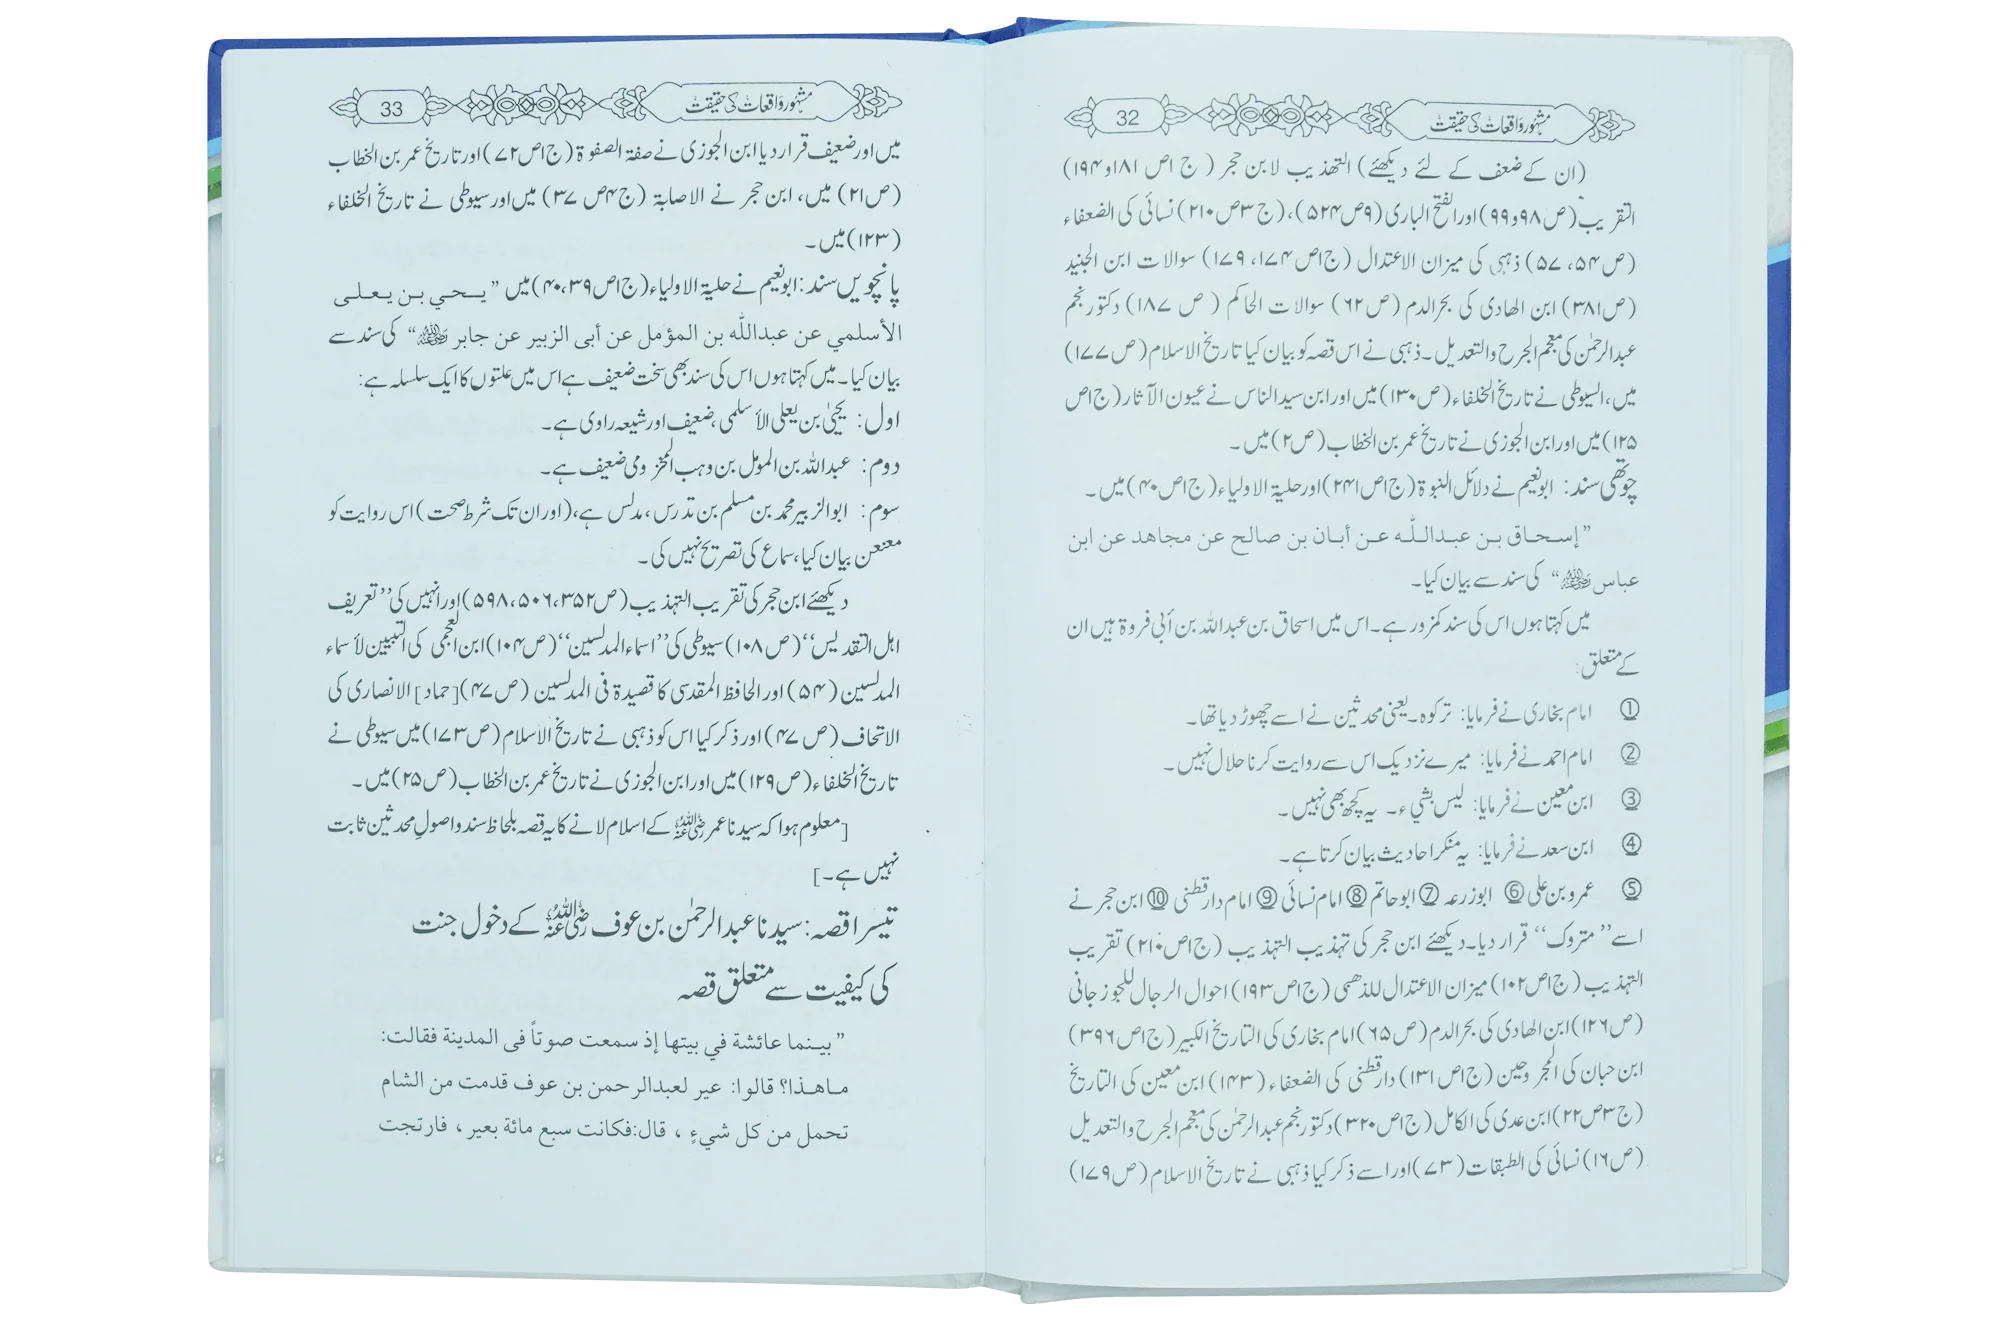 مشہور واقعات کی حقیقت 32
(ان کے ضعف کے لئے دیکھئے) التھذیب لابن حجر ( ج ۱ص ۱۸۱و۱۹۴)
التقریب(ص۹۸و۹۹)اور الفتح الباری(۹ص۵۲۴)،(ج۳ص۲۱۰)نسائی کی الضعفاء
(ص۵۴، ۵۷) ذہبی کی میزان الاعتدال (ج۱ص۱۷۴، ۱۷۹) سوالات ابن الجنید
(ص۳۸۱) ابن الھادی کی بحر الدم (ص۶۲) سوالات الحاکم ( ص ۱۸۷) دکتور نجم
عبدالرحمٰن کی معجم الجرح والتعدیل۔ذہبی نے اس قصہ کو بیان کیا تاریخ الاسلام (ص۱۷۷)
میں،السیوطی نے تاریخ الخلفاء(ص۱۳۰)میں اور ابن سید الناس نے عیون الآثار(ج۱ص
۱۲۵)میں اور ابن الجوزی نے تاریخ عمر بن الخطاب(ص۲)میں۔
چوتھی سند: ابونعیم نے دلائل النبوۃ(ج۱ص۲۴۱)اورحلیۃ الاولیاء(ج۱ص۴۰)میں۔
”إسحاق بن عبداللّٰه عن أبان بن صالح عن مجاهد عن ابن
عباس رضی اللہ عنہ“ کی سند سے بیان کیا۔
میں کہتا ہوں اس کی سند کمزور ہے۔اس میں اسحاق بن عبداللہ بن أبی فروۃ ہیں ان
کے متعلق:
① امام بخاری نے فرمایا: ترکوہ۔یعنی محدثین نے اسے چھوڑ دیا تھا۔
② امام احمد نے فرمایا: میرے نزدیک اس سے روایت کرنا حلال نہیں۔
③ ابن معین نے فرمایا: لیس بشيء۔ یہ کچھ بھی نہیں۔
④ ابن سعد نے فرمایا: یہ منکر احادیث بیان کرتا ہے۔
⑤ عمرو بن علی ⑥ ابوزرعہ ⑦ ابوحاتم ⑧ امام نسائی ⑨ امام دارقطنی ⑩ ابن حجر نے
اسے”متروک“ قرار دیا۔دیکھئے ابن حجر کی تہذیب التہذیب (ج۱ص۲۱۰) تقریب
التہذیب (ج۱ص۱۰۲) میزان الاعتدال للذھبی (ج۱ص۱۹۳) احوال الرجال للجوزجانی
(ص۱۲۶)ابن الھادی کی بحر الدم(ص۶۵)امام بخاری کی التاریخ الکبیر(ج۱ص۳۹۶)
ابن حبان کی المجروحین (ج۱ص۱۳۱) دارقطنی کی الضعفاء (۱۴۳) ابن معین کی التاریخ
(ج۳ص۲۲)ابن عدی کی الکامل(ج۱ص۳۲۰)دکتور نجم عبدالرحمٰن کی معجم الجرح والتعدیل
(ص۱۶) نسائی کی الطبقات(۷۳)اور اسے ذکر کیا ذہبی نے تاریخ الاسلام (ص۱۷۹)
مشہور واقعات کی حقیقت 33
میں اور ضعیف قرار دیا ابن الجوزی نے صفۃ الصفوۃ (ج۱ص۷۲)اور تاریخ عمر بن الخطاب
(ص۲۱) میں، ابن حجر نے الاصابۃ (ج۴ص ۳۷) میں اور سیوطی نے تاریخ الخلفاء
(۱۲۳)میں۔
پانچویں سند:ابونعیم نے حلیۃ الاولیاء(ج۱ص۳۹،۴۰)میں ”يحي بن يعلى
الأسلمي عن عبداللّٰه بن المؤمل عن أبى الزبير عن جابر رضی اللہ عنہ“ کی سند سے
بیان کیا۔میں کہتا ہوں اس کی سند بھی سخت ضعیف ہے اس میں علتوں کا ایک سلسلہ ہے:
اول: یحییٰ بن یعلی الأسلمی،ضعیف اور شیعہ راوی ہے۔
دوم: عبداللہ بن المومل بن وہب المخزومی ضعیف ہے۔
سوم: ابوالزبیر محمد بن مسلم بن تدرس،مدلس ہے،(اوران تک شرط صحت)اس روایت کو
معنعن بیان کیا،سماع کی تصریح نہیں کی۔
دیکھئے ابن حجر کی تقریب التہذیب(ص۳۵۲،۵۰۶،۵۹۸)اور انہیں کی”تعریف
اہل التقدیس“(ص۱۰۸)سیوطی کی”اسماء المدلسین“(ص۱۰۴)ابن العجمی کی التبیین لأسماء
المدلسین (۵۴)اور الحافظ المقدسی کا قصیدۃ فی المدلسین (ص۴۷)[حماد]الانصاری کی
الاتحاف (ص۴۷)اور ذکر کیا اس کو ذہبی نے تاریخ الاسلام (ص۱۷۳)میں سیوطی نے
تاریخ الخلفاء(ص۱۲۹)میں اور ابن الجوزی نے تاریخ عمر بن الخطاب(ص۲۵)میں۔
[معلوم ہوا کہ سیدنا عمر رضی اللہ عنہ کے اسلام لانے کا یہ قصہ بلحاظ سند واصولِ محدثین ثابت
نہیں ہے۔]
تیسرا قصہ:سیدنا عبدالرحمٰن بن عوف رضی اللہ عنہ کے دخول جنت
کی کیفیت سے متعلق قصہ
”بينما عائشة في بيتها إذ سمعت صوتاً فى المدينة فقالت:
ماهذا؟ قالوا: عير لعبدالرحمن بن عوف قدمت من الشام
تحمل من كل شيءٍ ، قال:فكانت سبع مائة بعير ، فارتجت